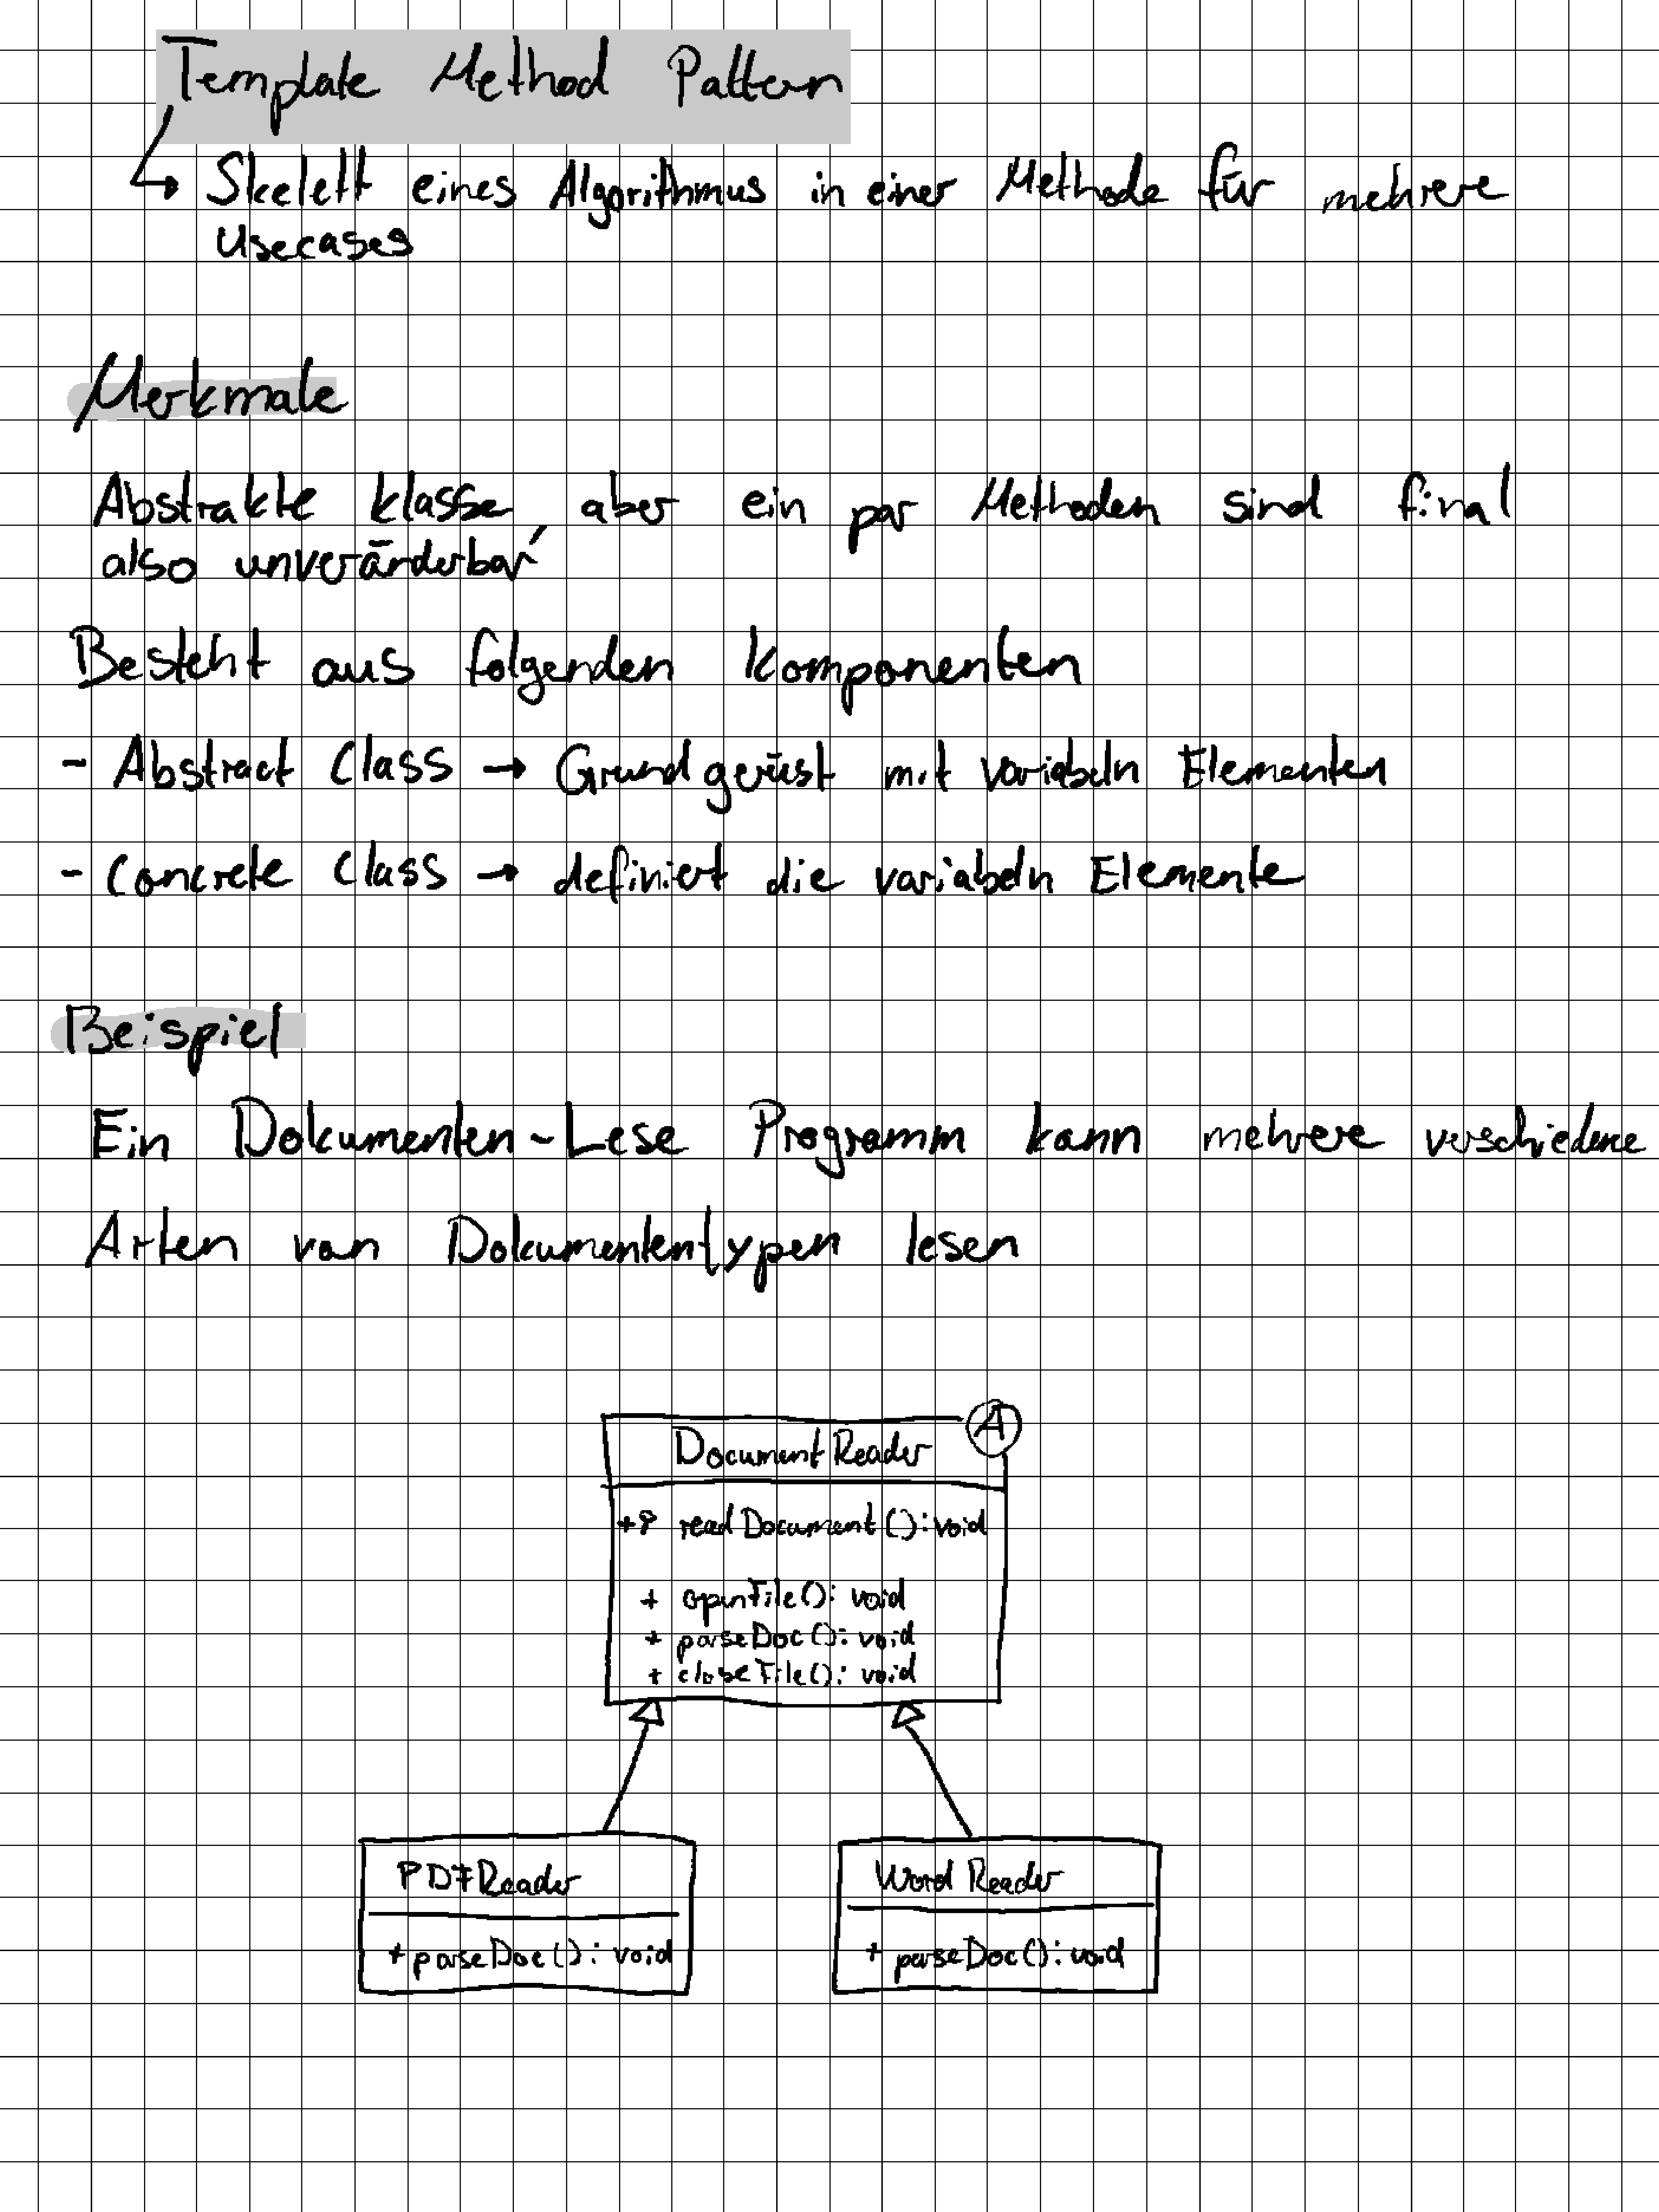 Template Method Pattern
↳ Skelett eines Algorithmus in einer Methode für mehrere
Usecases
Merkmale
Abstrakte Klasse, aber ein par Methoden sind final
also unveränderbar
Besteht aus folgenden Komponenten
- Abstract Class → Grundgerüst mit variabeln Elementen
- Concrete Class → definiert die variabeln Elemente
Beispiel
Ein Dokumenten-Lese Programm kann mehrere verschiedene
Arten von Dokumententypen lesen
A
DocumentReader
+ readDocument(): void
+ openFile(): void
+ parseDoc(): void
+ closeFile(): void
PDFReader
+ parseDoc(): void
WordReader
+ parseDoc(): void